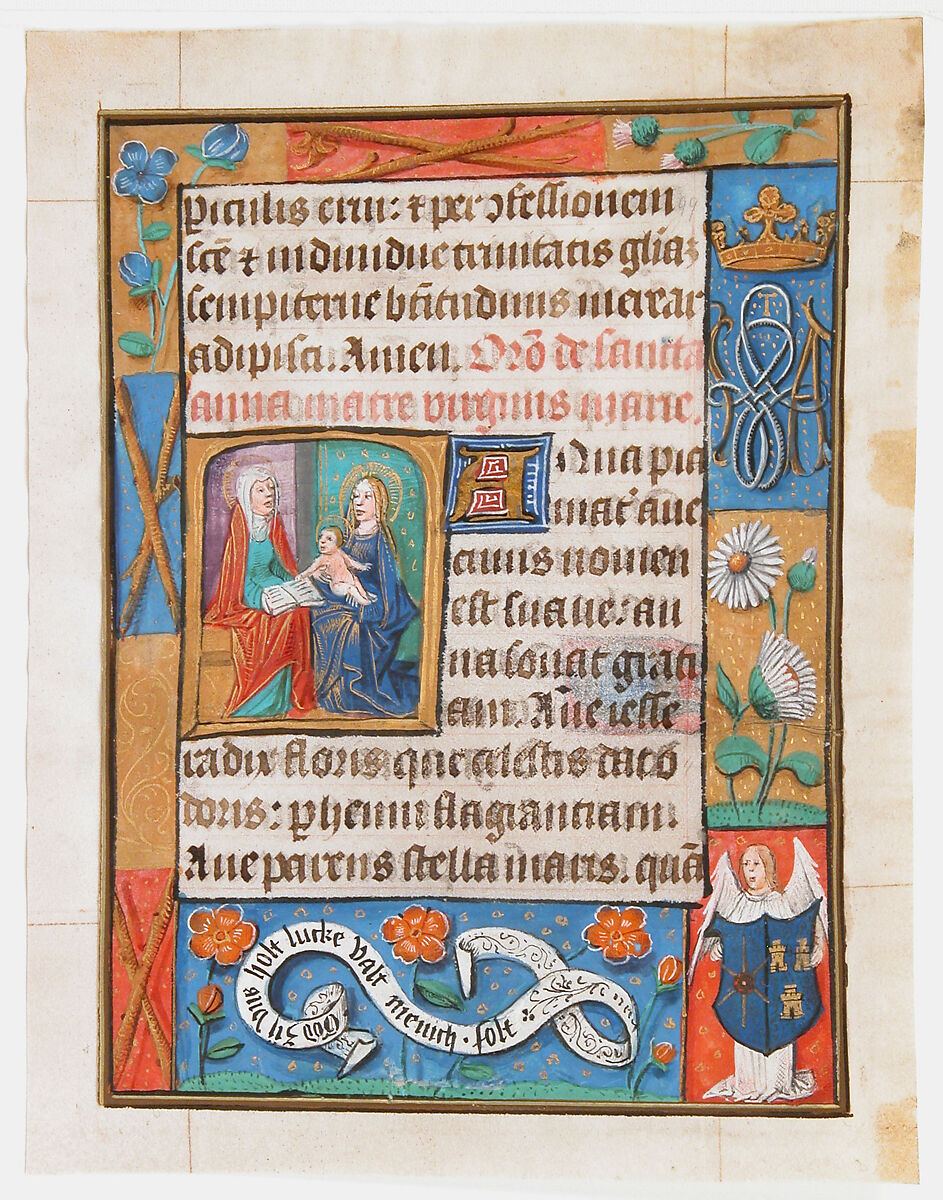 piculis erui: ⁊ per ꝯfessionem
scē ⁊ indiuidue trinitatis gliaȝ
sempiterne btitudinis merear
adipisci. Amen. Oro de sancta
anna matre virginis marie.
Aua pia
mat aue
cuius nomen
est suaue: an
na sonat graci
am. Aue iesse
radix floris que celestis
doris: phenni flagranciam.
Aue parens stella maris. quā
zy hus holt lucke valt mench folt